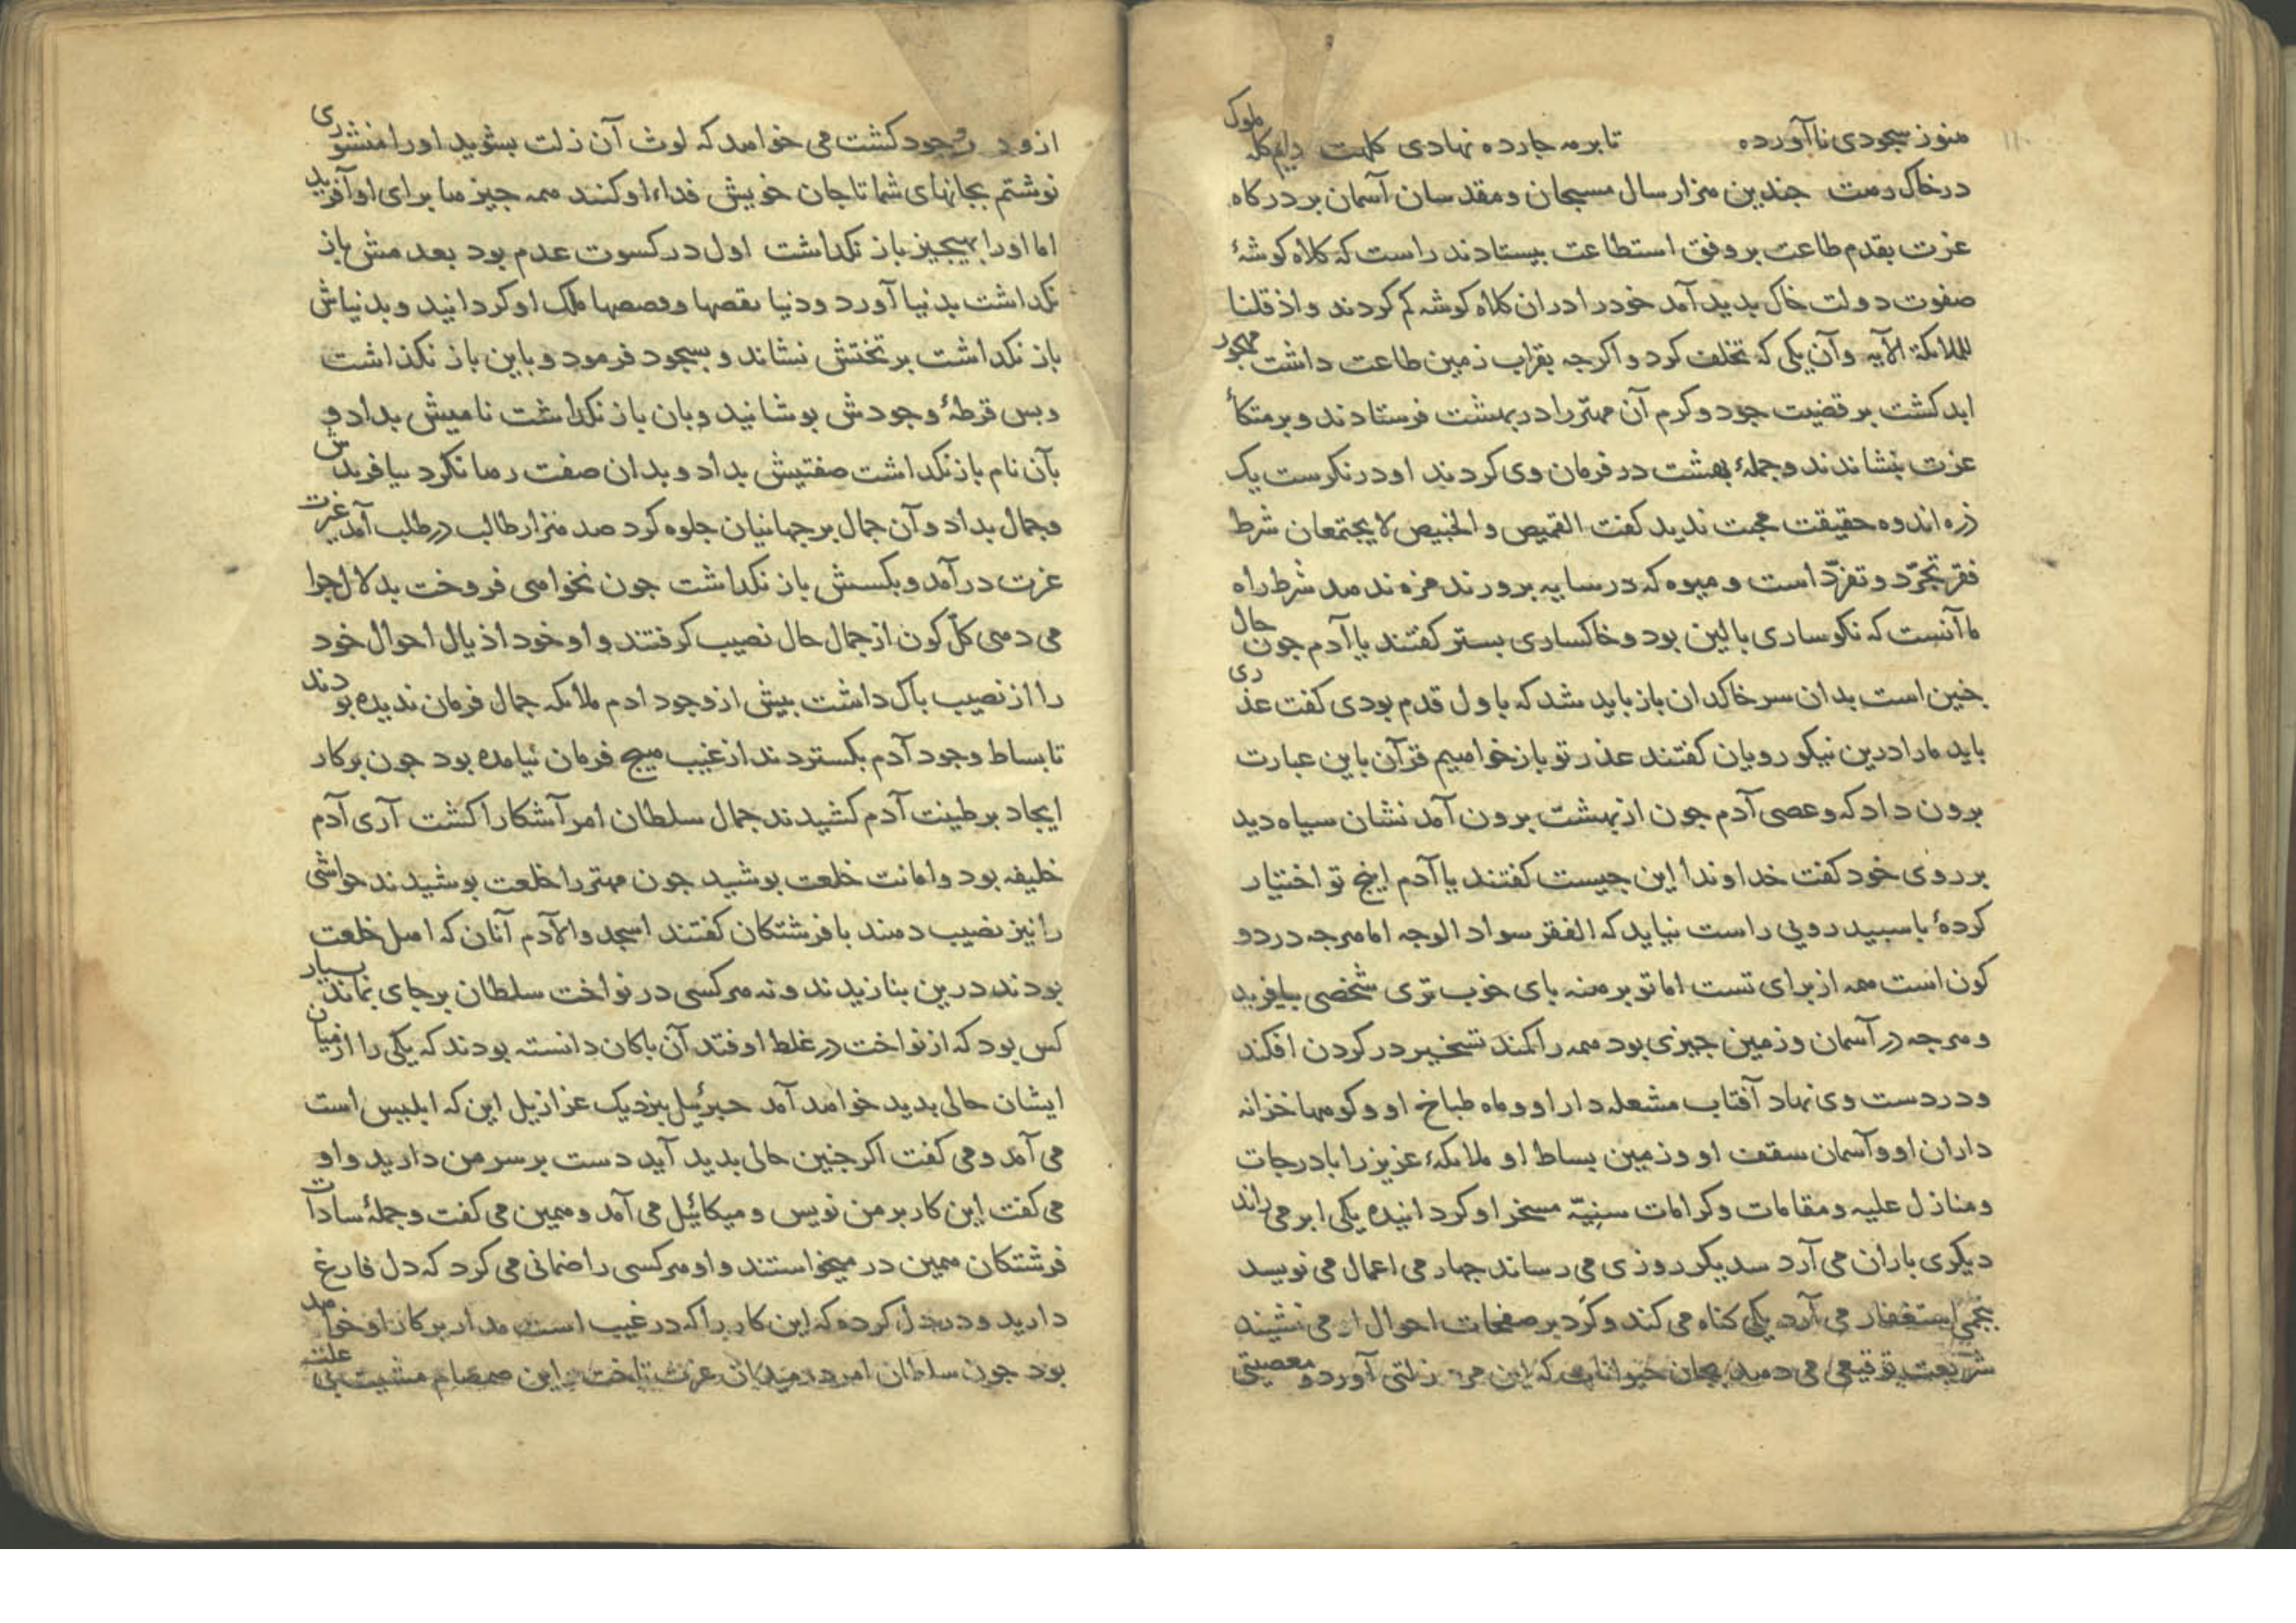 هنوز سجودی ناآورده تا بر مه چارده نهادی کلهت دایم کله ملوک
در خاک رهت چندین هزار سال مسبحان و مقدسان آسمان بر درکاه
عزت بقدم طاعت بر وفق استطاعت بیستادند راست که کلاه کوشهٔ
صفوت دولت خاک بدید آمد خود را در ان کلاه کوشه کم کردند و اذ قلنا
للملائکة الآیه وآن یکی که تخلف کرد و اکر جه بقراب زمین طاعت داشت مهجور
ابد کشت بر قضیت جود و کرم آن مهتر را در بهشت فرستادند و بر متکأ
عزت بنشاندند و جملهٔ بهشت در فرمان وی کردند او درنکرست یک
ذره اندوه حقیقت محبت ندید کفت القمیص و الخبیص لا یجتمعان شرط
فقر تجرّد و تفرّد است و میوه که در سایه برورند مزه ندهد شرط راه
ما آنست که نکوساری بالین بود و خاکساری بستر کفتند یا آدم جون حال
جنین است بدان سر خاکدان باز باید شد که باول قدم بودی کفت عذری
باید ما را درین نیکو رویان کفتند عذر تو باز خواهیم قرآن باین عبارت
برون داد که وعصی آدم جون از بهشت برون آمد نشان سیاه دید
بر روی خود کفت خداوندا این جیست کفتند یا آدم اینج تو اختیار
کردهٔ با سبید رویی راست نیاید که الفقر سواد الوجه اما هرجه در دو
کون است همه از برای تست اما تو برهنه بای خوب تری شخصی بیافرید
و هرجه در آسمان و زمین جیزی بود همه را کمند تسخیر در کردن افکند
و در دست وی نهاد آفتاب مشعله دار او و ماه طباخ او و کوهها خزانه
داران او و آسمان سقف او و زمین بساط او ملائکهٔ عزیز را با درجات
و منازل علیه و مقامات و کرامات سنیّه مسخر او کردانیده یکی ابر می راند
دیکری باران می آرد سدیکر روزی می رساند جهارمی اعمال می نویسد
بنجمی استغفار می آرد یکی کناه می کند و کرد بر صفحات احوال او می نشیند
شریعت توقیعی می دهد بجان حیوانات که این می زلتی آورد و معصیتی
ازو در وجود کشت می خواهد که لوث آن زلت بشوید او را منشوری
نوشتم بجانهای شما تا جان خویش فداء او کنند همه جیزها برای او آفرید
اما او را بهیجیز باز نکذاشت اول در کسوت عدم بود بعدمش باز
نکذاشت بدنیا آورد و دنیا بقصها و فصصها ملک او کردانید و بدنیاش
باز نکذاشت بر تختش نشاند و بسجود فرمود و باین باز نکذاشت
و بس قرطهٔ وجودش بوشانید و بان باز نکذاشت نامیش بداد و
بآن نام باز نکذاشت صفتیش بداد و بدان صفت رها نکرد بیافریدش
و جمال بداد و آن جمال بر جهانیان جلوه کرد صد هزار طالب در طلب آمد غیرت
عزت درآمد و بکسش باز نکذاشت جون نخواهی فروخت بدلال جرا
می دهی کلّ کون از جمال حال نصیب کرفتند و او خود اذیال احوال خود
را از نصیب باک داشت بیش از وجود ادم ملائکه جمال فرمان ندیده بودند
تا بساط وجود آدم بکستردند از غیب هیج فرمان نیامده بود جون برکار
ایجاد بر طینت آدم کشیدند جمال سلطان امر آشکارا کشت آری آدم
خلیفه بود و امانت خلعت بوشید جون مهتر را خلعت بوشیدند حواشی
را نیز نصیب دهند با فرشتکان کفتند اسجدوا لآدم آنان که اهل خلعت
بودند درین بنازیدند و نه هر کسی در نواخت سلطان برجای بماند بسیار
کس بود که از نواخت در غلط اوفتد آن باکان دانسته بودند که یکی را از میان
ایشان حالی بدید خواهد آمد جبرئیل بنزدیک عزازیل این که ابلیس است
می آمد و می کفت اکر جنین حالی بدید آید دست بر سر من دارید و او
می کفت این کار بر من نویس و میکائیل می آمد و همین می کفت و جملهٔ سادات
فرشتکان همین در میخواستند و او هر کسی را ضمانی می کرد که دل فارغ
دارید و در دل کرده که این کار را که در غیب است مدار بر کار او خواهد
بود جون سلطان امر در میدان عزت تاخت این صمصام مشیت بی علت